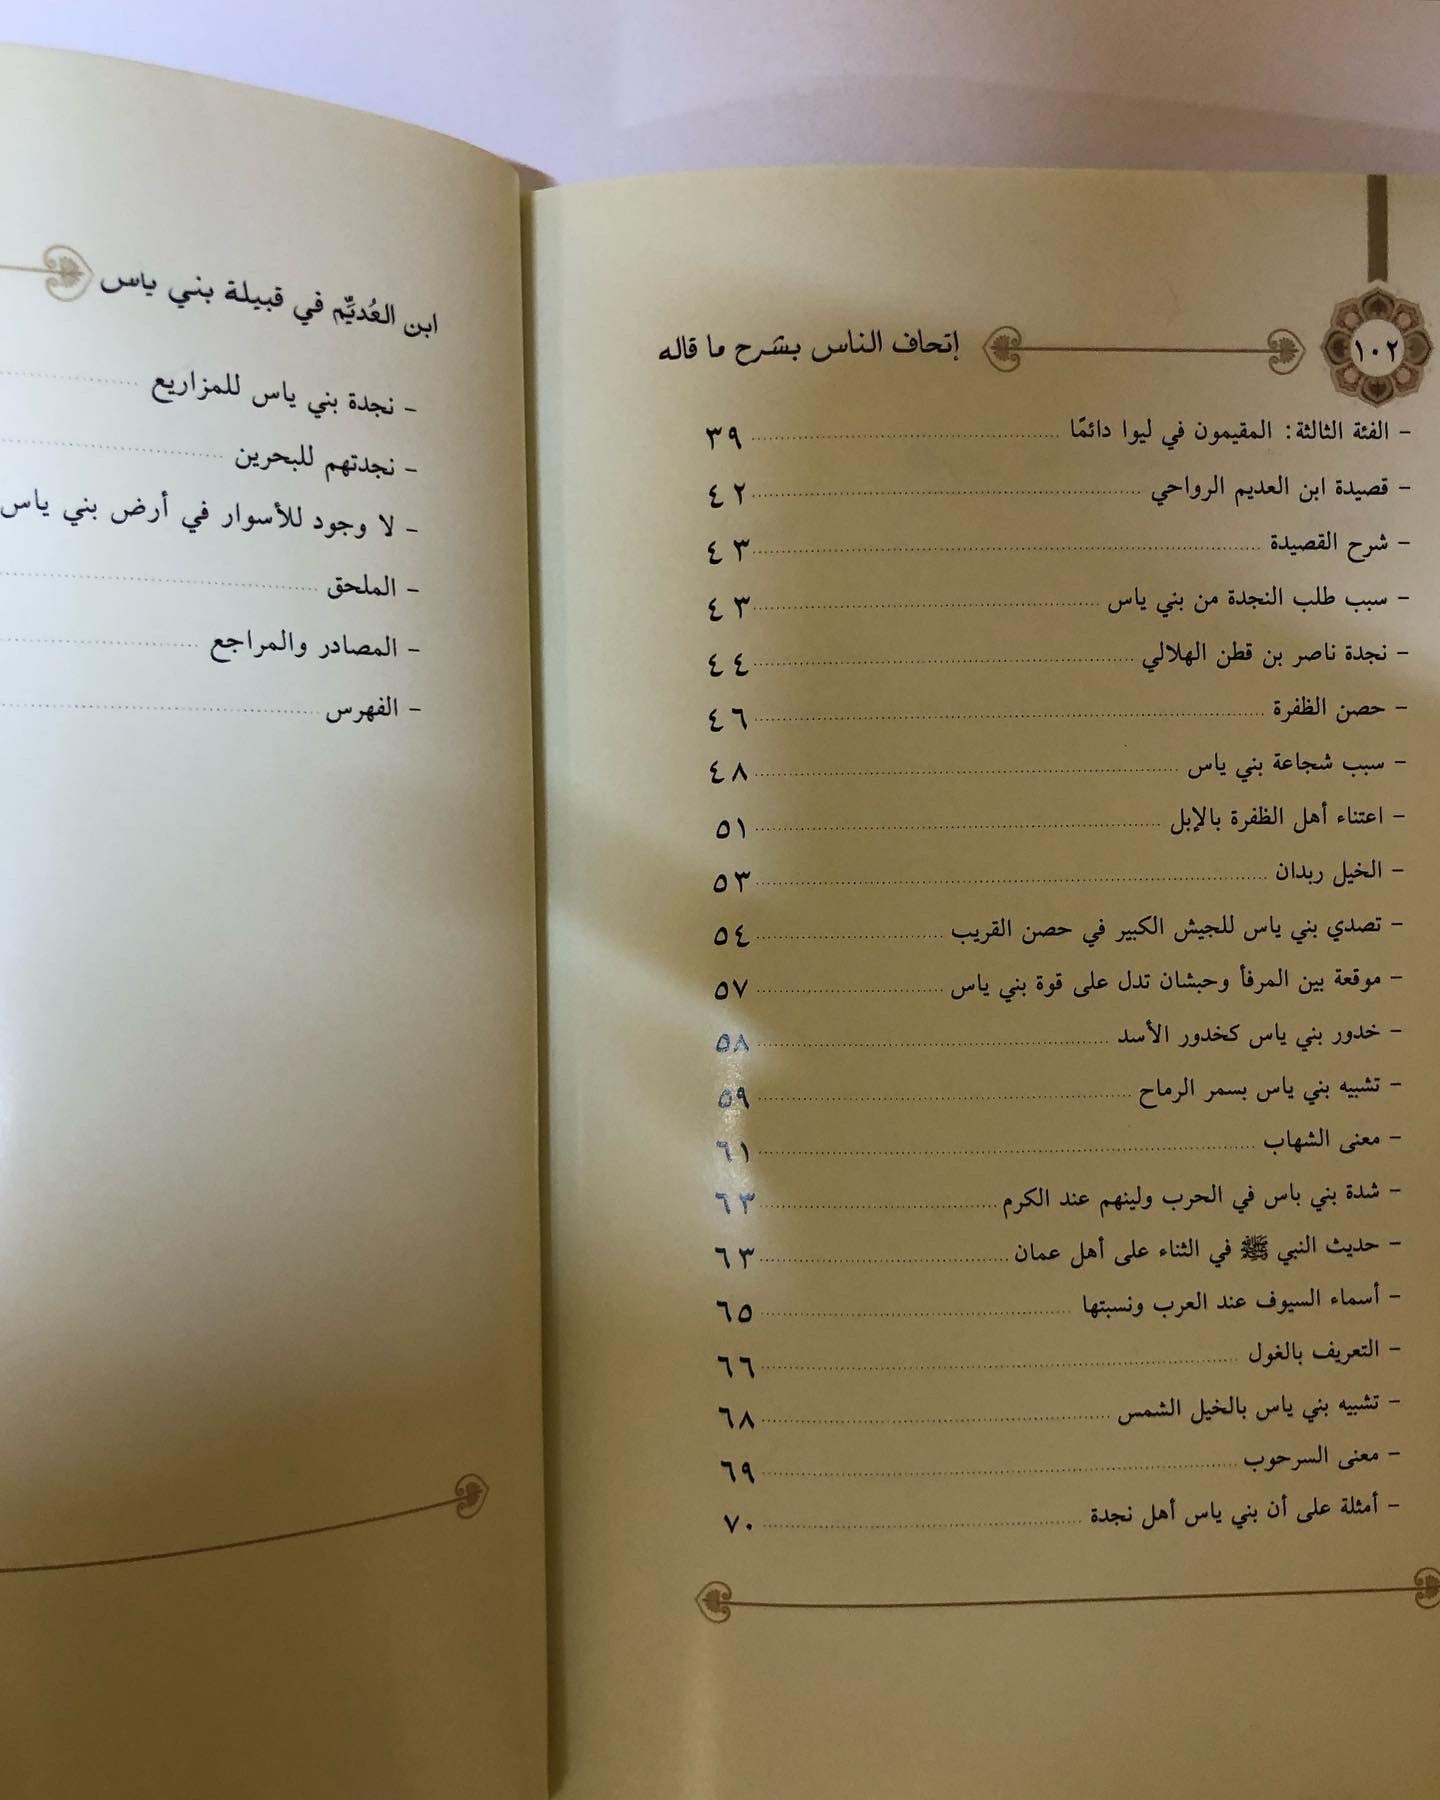 ١٠٢
إتحاف الناس بشرح ما قاله
- الفئة الثالثة: المقيمون في ليوا دائمًا ٣٩
- قصيدة ابن العديم الرواحي ٤٢
- شرح القصيدة ٤٣
- سبب طلب النجدة من بني ياس ٤٣
- نجدة ناصر بن قطن الهلالي ٤٤
- حصن الظفرة ٤٦
- سبب شجاعة بني ياس ٤٨
- اعتناء أهل الظفرة بالإبل ٥١
- الخيل ربدان ٥٣
- تصدي بني ياس للجيش الكبير في حصن القريب ٥٤
- موقعة بين المرفأ وحبشان تدل على قوة بني ياس ٥٧
- خدور بني ياس كخدور الأسد ٥٨
- تشبيه بني ياس بسمر الرماح ٥٩
- معنى الشهاب ٦١
- شدة بني باس في الحرب ولينهم عند الكرم ٦٣
- حديث النبي ﷺ في الثناء على أهل عمان ٦٣
- أسماء السيوف عند العرب ونسبتها ٦٥
- التعريف بالغول ٦٦
- تشبيه بني ياس بالخيل الشمس ٦٨
- معنى السرحوب ٦٩
- أمثلة على أن بني ياس أهل نجدة ٧٠
ابن العُديِّم في قبيلة بني ياس
- نجدة بني ياس للمزاريع
- نجدتهم للبحرين
- لا وجود للأسوار في أرض بني ياس
- الملحق
- المصادر والمراجع
- الفهرس